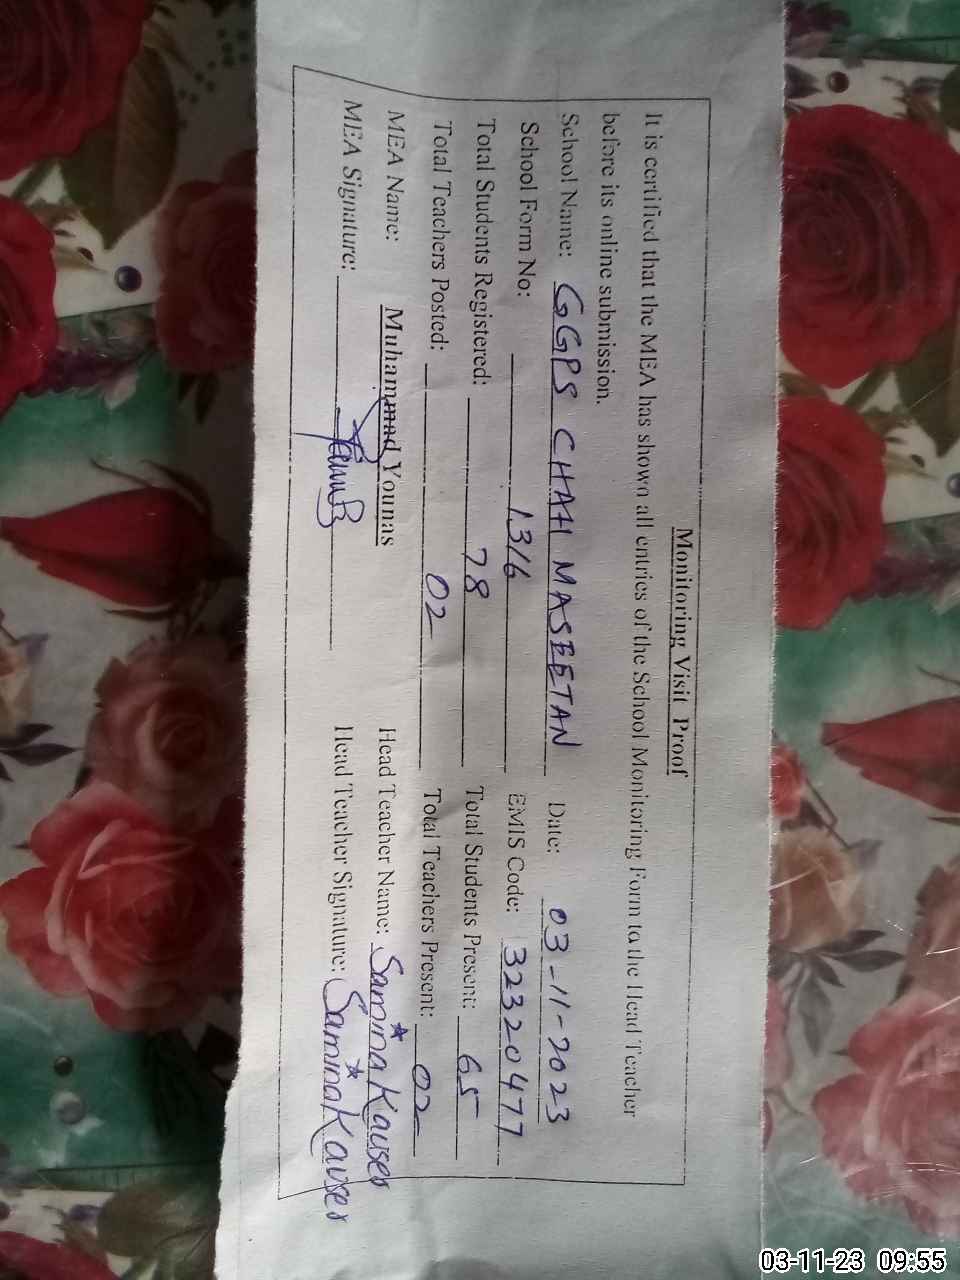 Monitoring Visit Proof
It is certified that the MEA has shown all entries of the School Monitoring Form to the Head Teacher
before its online submission.
School Name: GGPS CHAH MASEETAN Date: 03-11-2023
School Form No: 1316 EMIS Code: 32320477
Total Students Registered: 78 Total Students Present: 65
Total Teachers Posted: 02 Total Teachers Present: 02
MEA Name: Muhammad Younas Head Teacher Name: Samina Kauser
MEA Signature: Head Teacher Signature: Samina Kauser
03-11-23 09:55